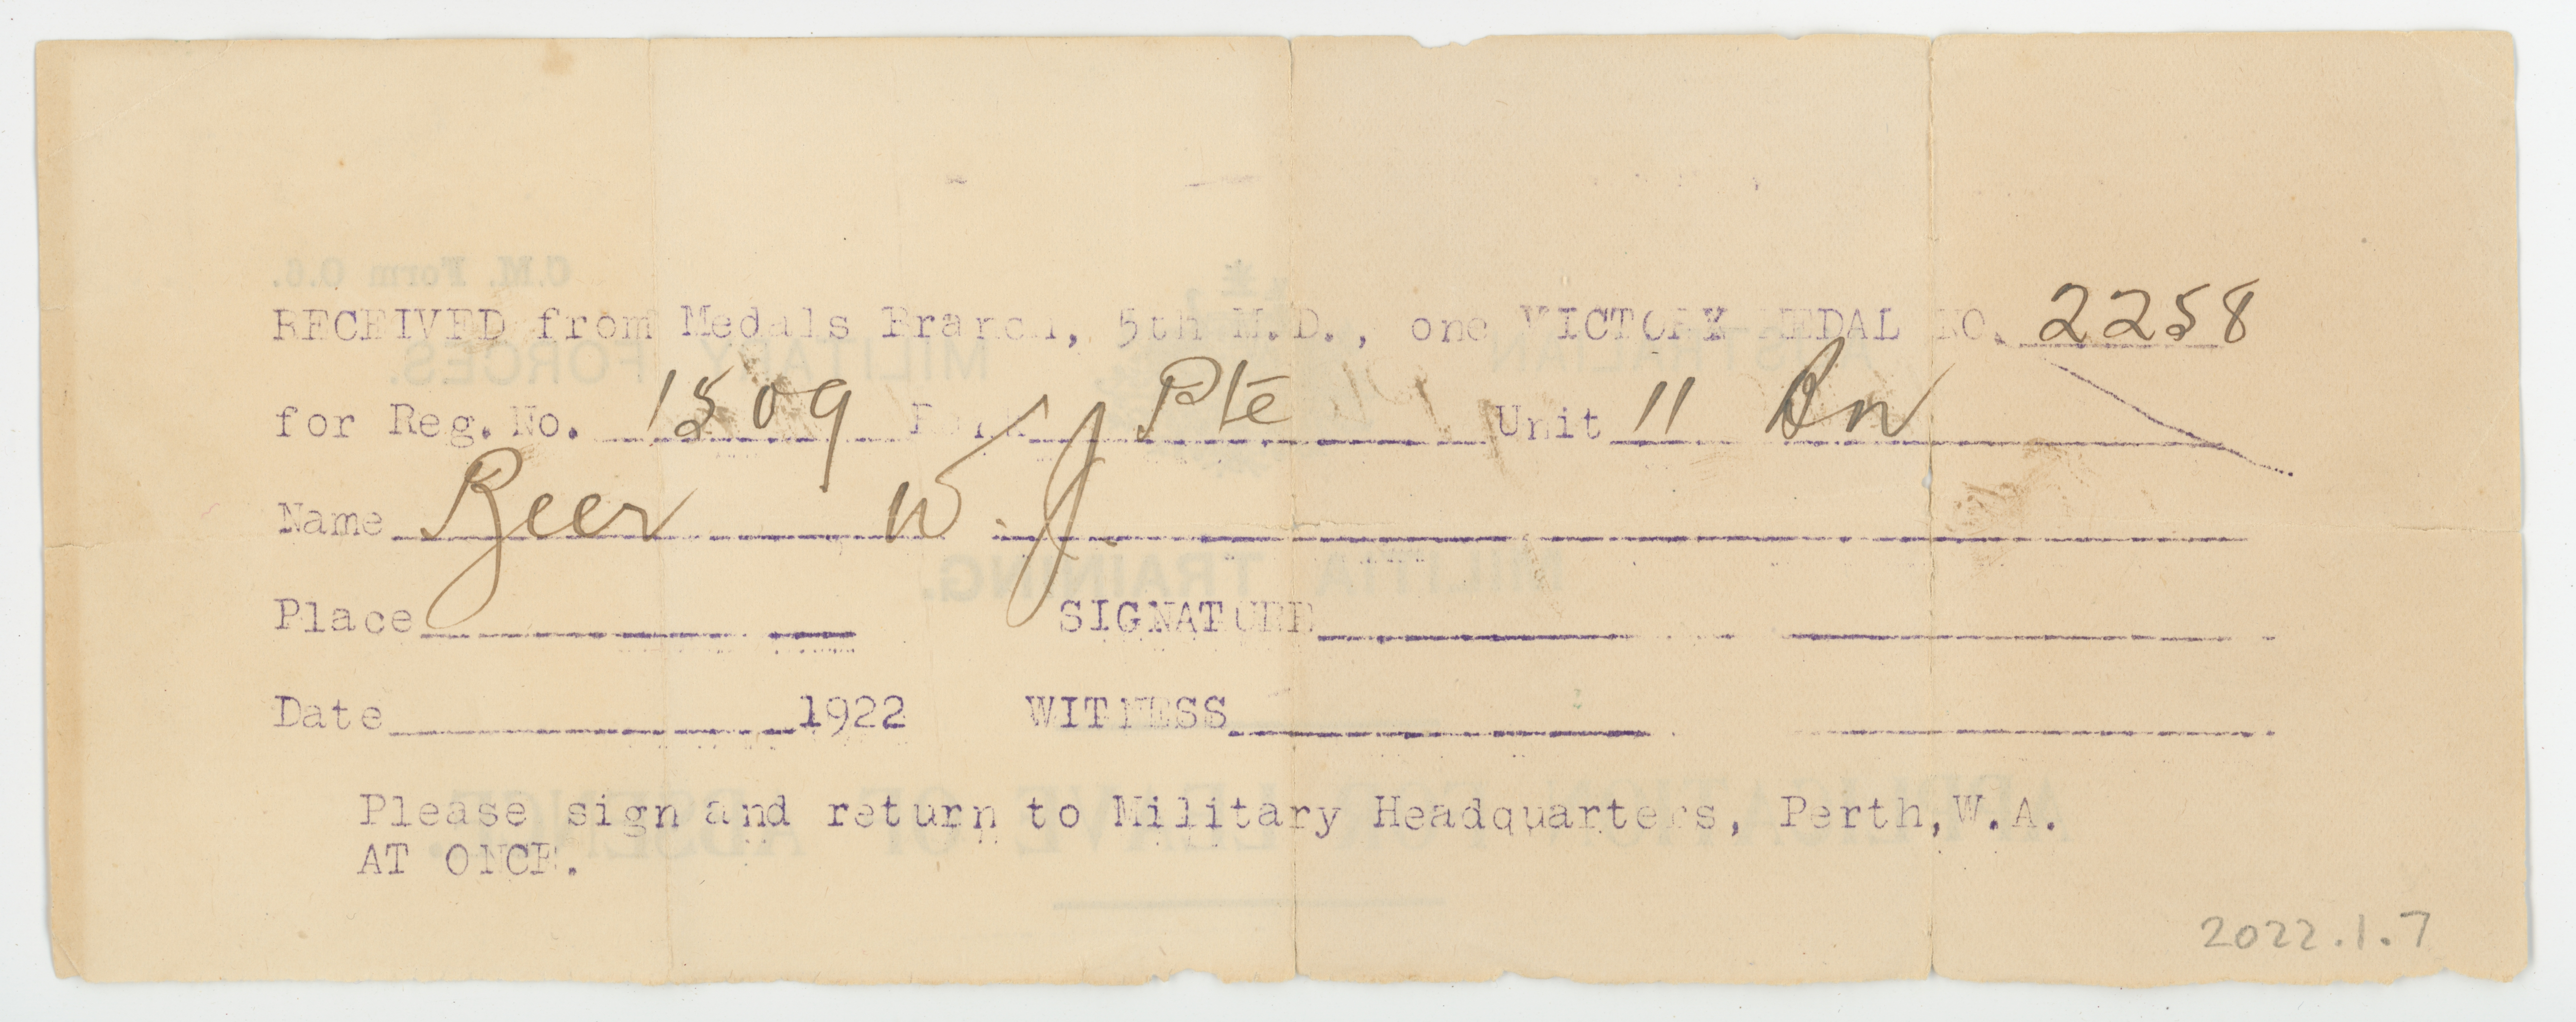 RECEIVED from Medals Branch, 5th M.D., one VICTORY MEDAL NO. 2258
for Reg. No. 1509 Rank Pte Unit 11 Bn
Name Beer W. J.
Place SIGNATURE
Date 1922 WITNESS
Please sign and return to Military Headquarters, Perth, W.A.
AT ONCE.
2022.1.7